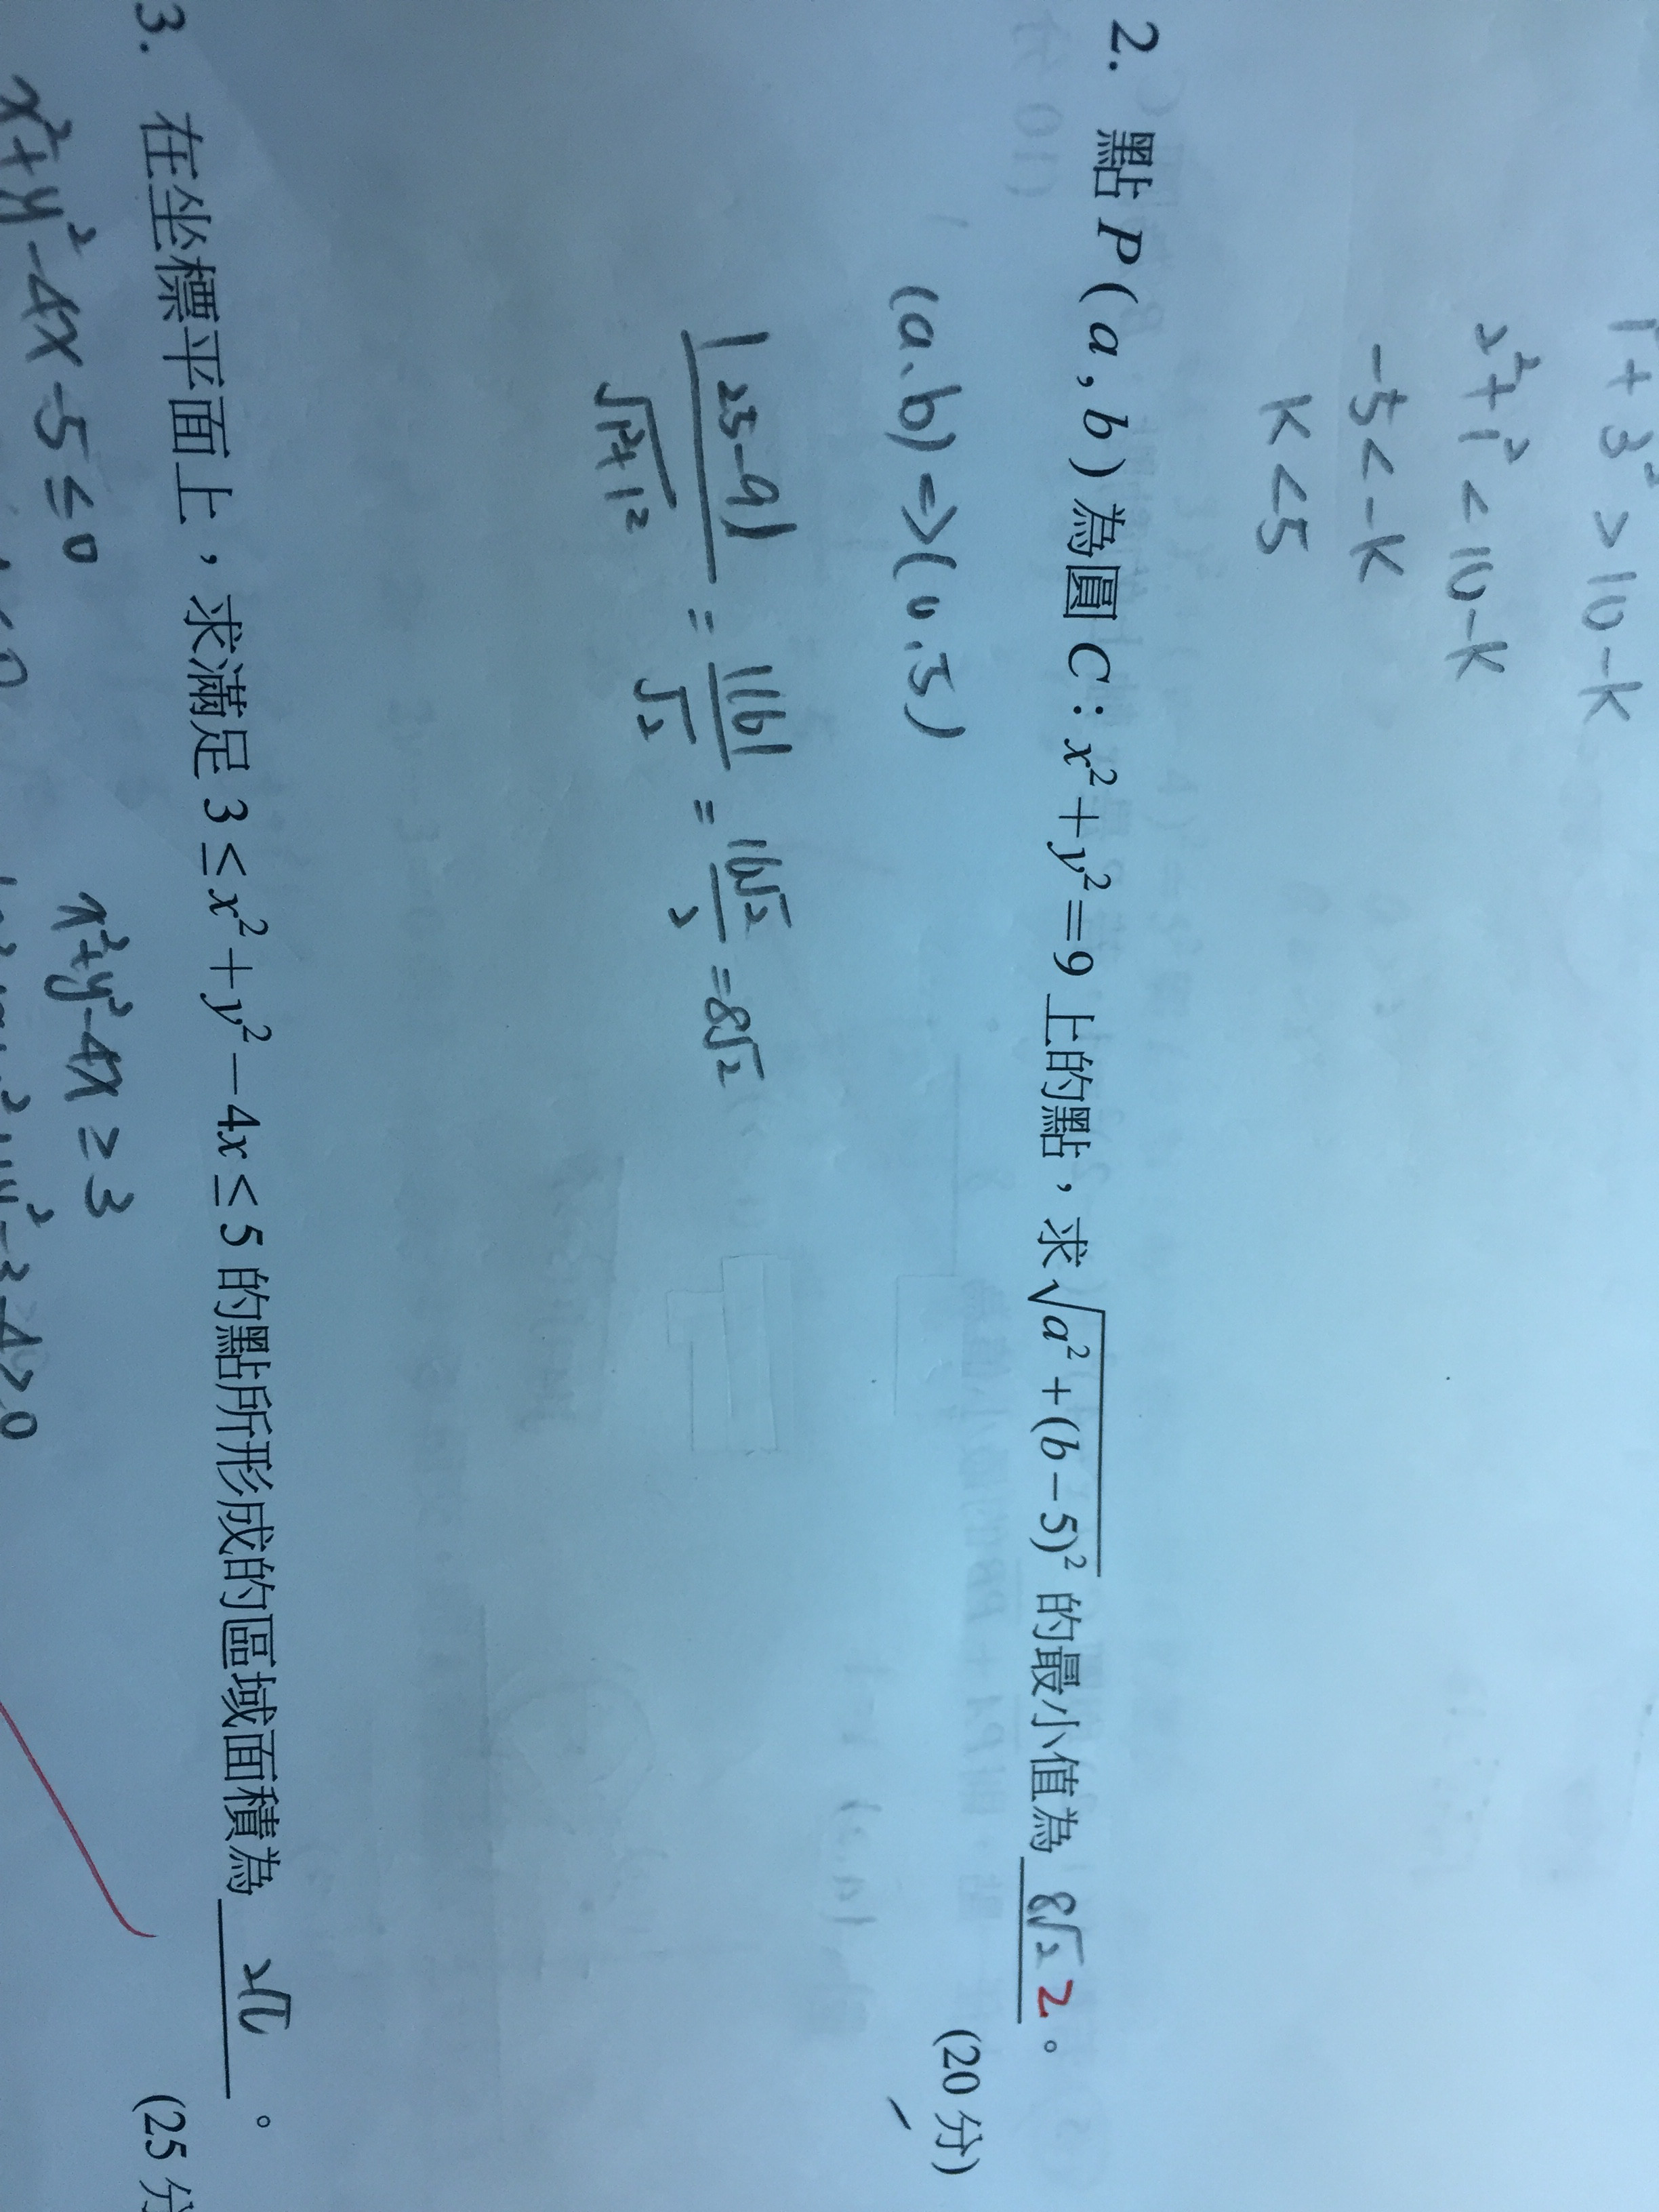 1 + 3² > 10 - k
2² + 1² < 10 - k
-5 < -k
k < 5
2. 點 P ( a , b ) 為圓 C : x² + y² = 9 上的點，求 √(a² + (b − 5)²) 的最小值為 8√2 2 。
(20 分)
(a.b) => (0.5)
|25-9| / √(1²+1²) = |16| / √2 = 16√2 / 2 = 8√2
3. 在坐標平面上，求滿足 3 ≤ x² + y² − 4x ≤ 5 的點所形成的區域面積為 2π 。
(25 分
x² + y² - 4x - 5 ≤ 0
x² + y² - 4x ≥ 3